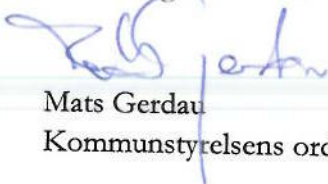 Mats Gerdau
Kommunstyrelsens ord